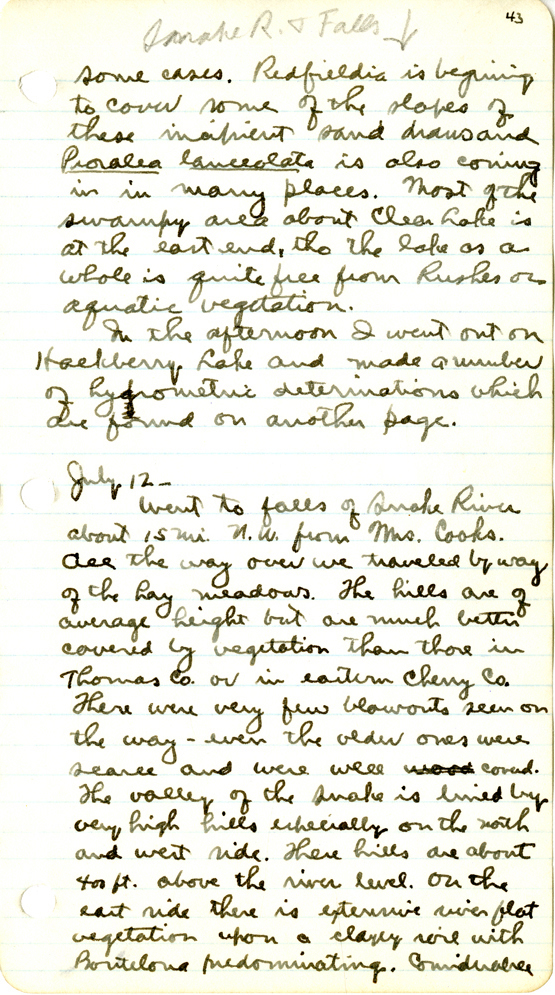 43
Snake R. & Falls ↓
some cases. Redfieldia is begining
to cover some of the slopes of
these incipient sand draws and
Psoralea lanceolata is also coming
in in many places. Most of the
swampy area about Clear Lake is
at the east end, tho the lake as a
whole is quite free from Rushes or
aquatic vegetation.
In the afternoon I went out on
Hackberry Lake and made a number
of hygrometric determinations which
are found on another page.
July 12 –
Went to falls of Snake River
about 15 mi. N.W. from Mrs. Cooks.
All the way over we traveled by way
of the hay meadows. The hills are of
average height but are much better
covered by vegetation than those in
Thomas Co. or in eastern Cherry Co.
There were very few blowouts seen on
the way – even the older ones were
scarce and were well coverd.
The valley of the Snake is lined by
very high hills especially on the north
and west side. These hills are about
400 ft. above the river level. On the
east side there is extensive river flat
vegetation upon a clayey soil with
Bouteloua predominating. Considerable